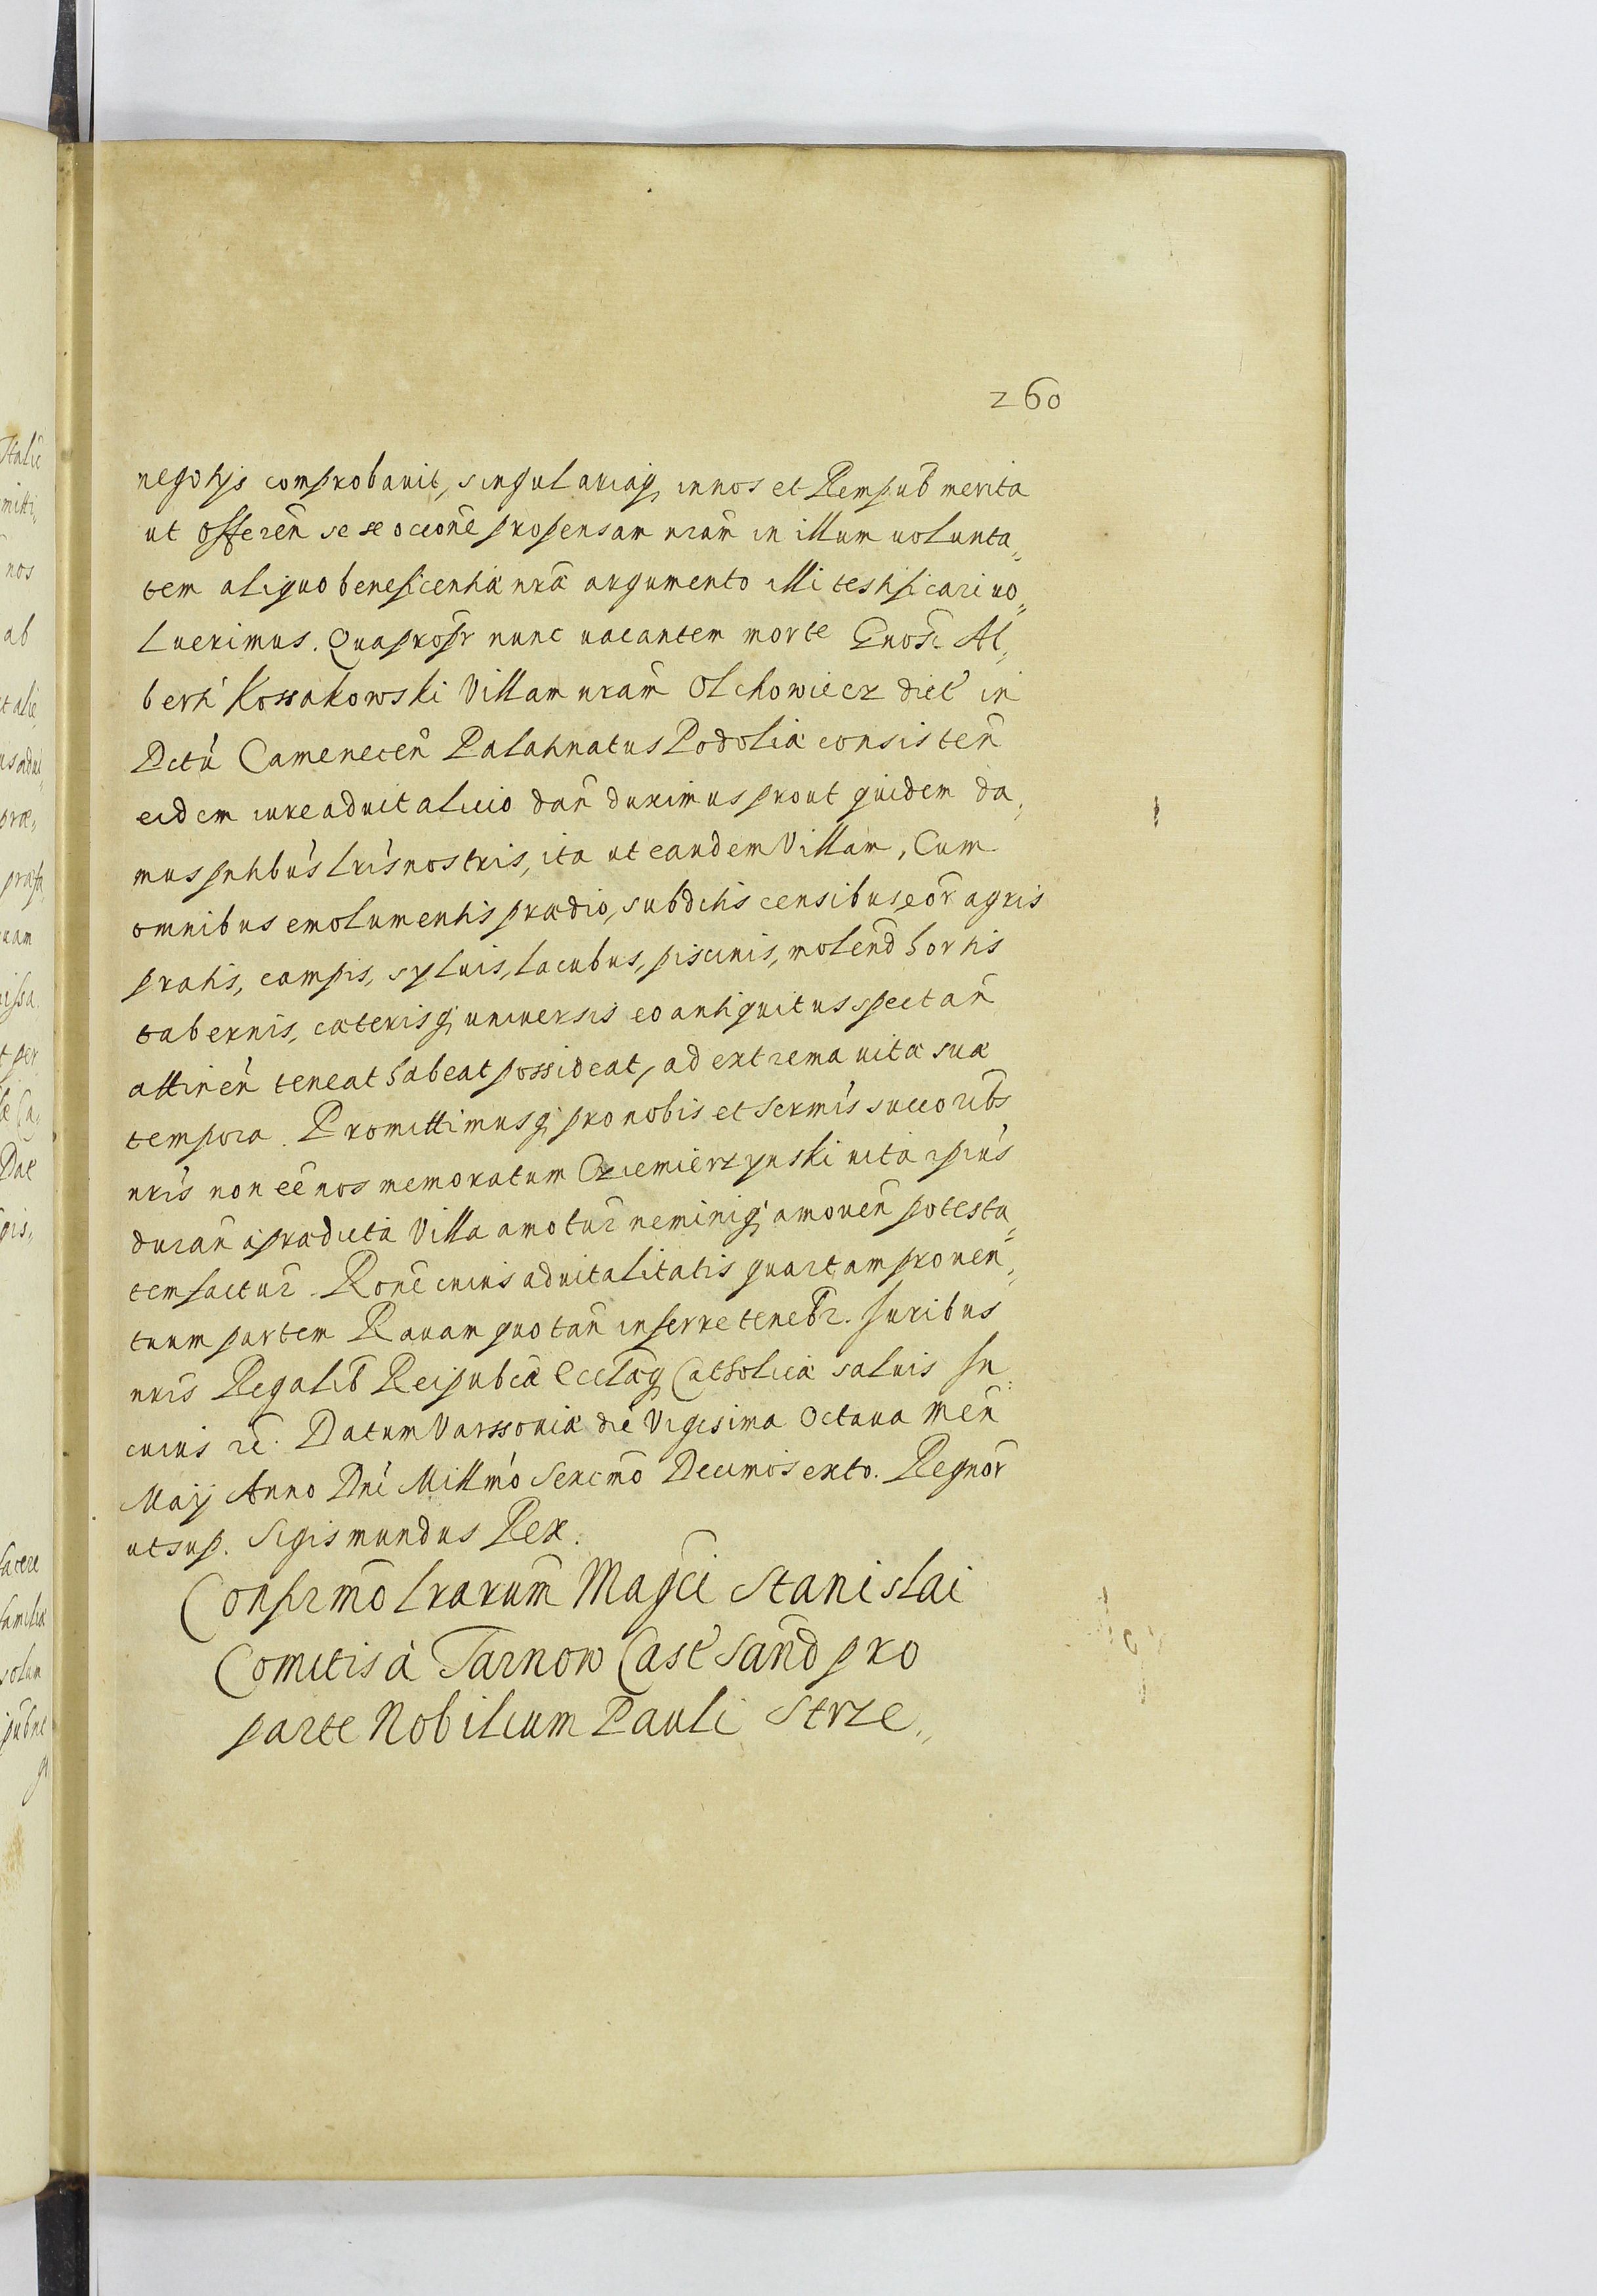 260
negotijs comprobauit, singulariaq, in nos et Rempub merita
ut offeren̄ se se occōne propensam nr̄am in illum uolunta„
tem aliquo beneficentiæ nr̄æ argumento illi testificari uo„
luerimus. Quapropr nunc uacantem morte Gnosi Al„
berti Kossakowski Villam nr̄am Olchowiecz dict in
Dctū Camenecen̄ Palatinatus Podoliæ consisten̄
eidem iure aduitalicio dan̄ duximus prout quidem da„
mus pn̄tibus lris nostris, ita ut eandem Villam, Cum
omnibus emolumentis prædio, subditis censibus eor̄ agris
pratis, campis, syluis, lacubus, piscinis, molend̄ hortis
tabernis, cæterisq; uniuersis eo antiquitus spectan̄
attinen̄ teneat habeat possideat, ad extrema uitæ suæ
tempora. Promittimusq; pro nobis et Serm̄is succorib̄s
nr̄is non eē nos memoratum Cziemierzynski uita ipius
duran̄ a prædicta Villa amotur neminiq; amouen̄ potesta„
tem factur. Rōne cuius aduitalitatis quartam prouen„
tuum partem Rauam quotan̄ inferre teneb̄r. Juribus
nr̄is Regalib̄ Reipub̄cæ Eccl̄æq; Catholicæ saluis In
cuius rē. Datum Varssouiæ die Vigesima Octaua Men̄
Maij Anno Dn̄i Millm̄o Sexcm̄o Decimosexto. Regnor̄
ut sup. Sigismundus Rex.
Confirm̄o lrarum Maḡci Stanislai
Comitis à Tarnow Cast̄ San̄d pro
parte Nobilium Pauli Strze„